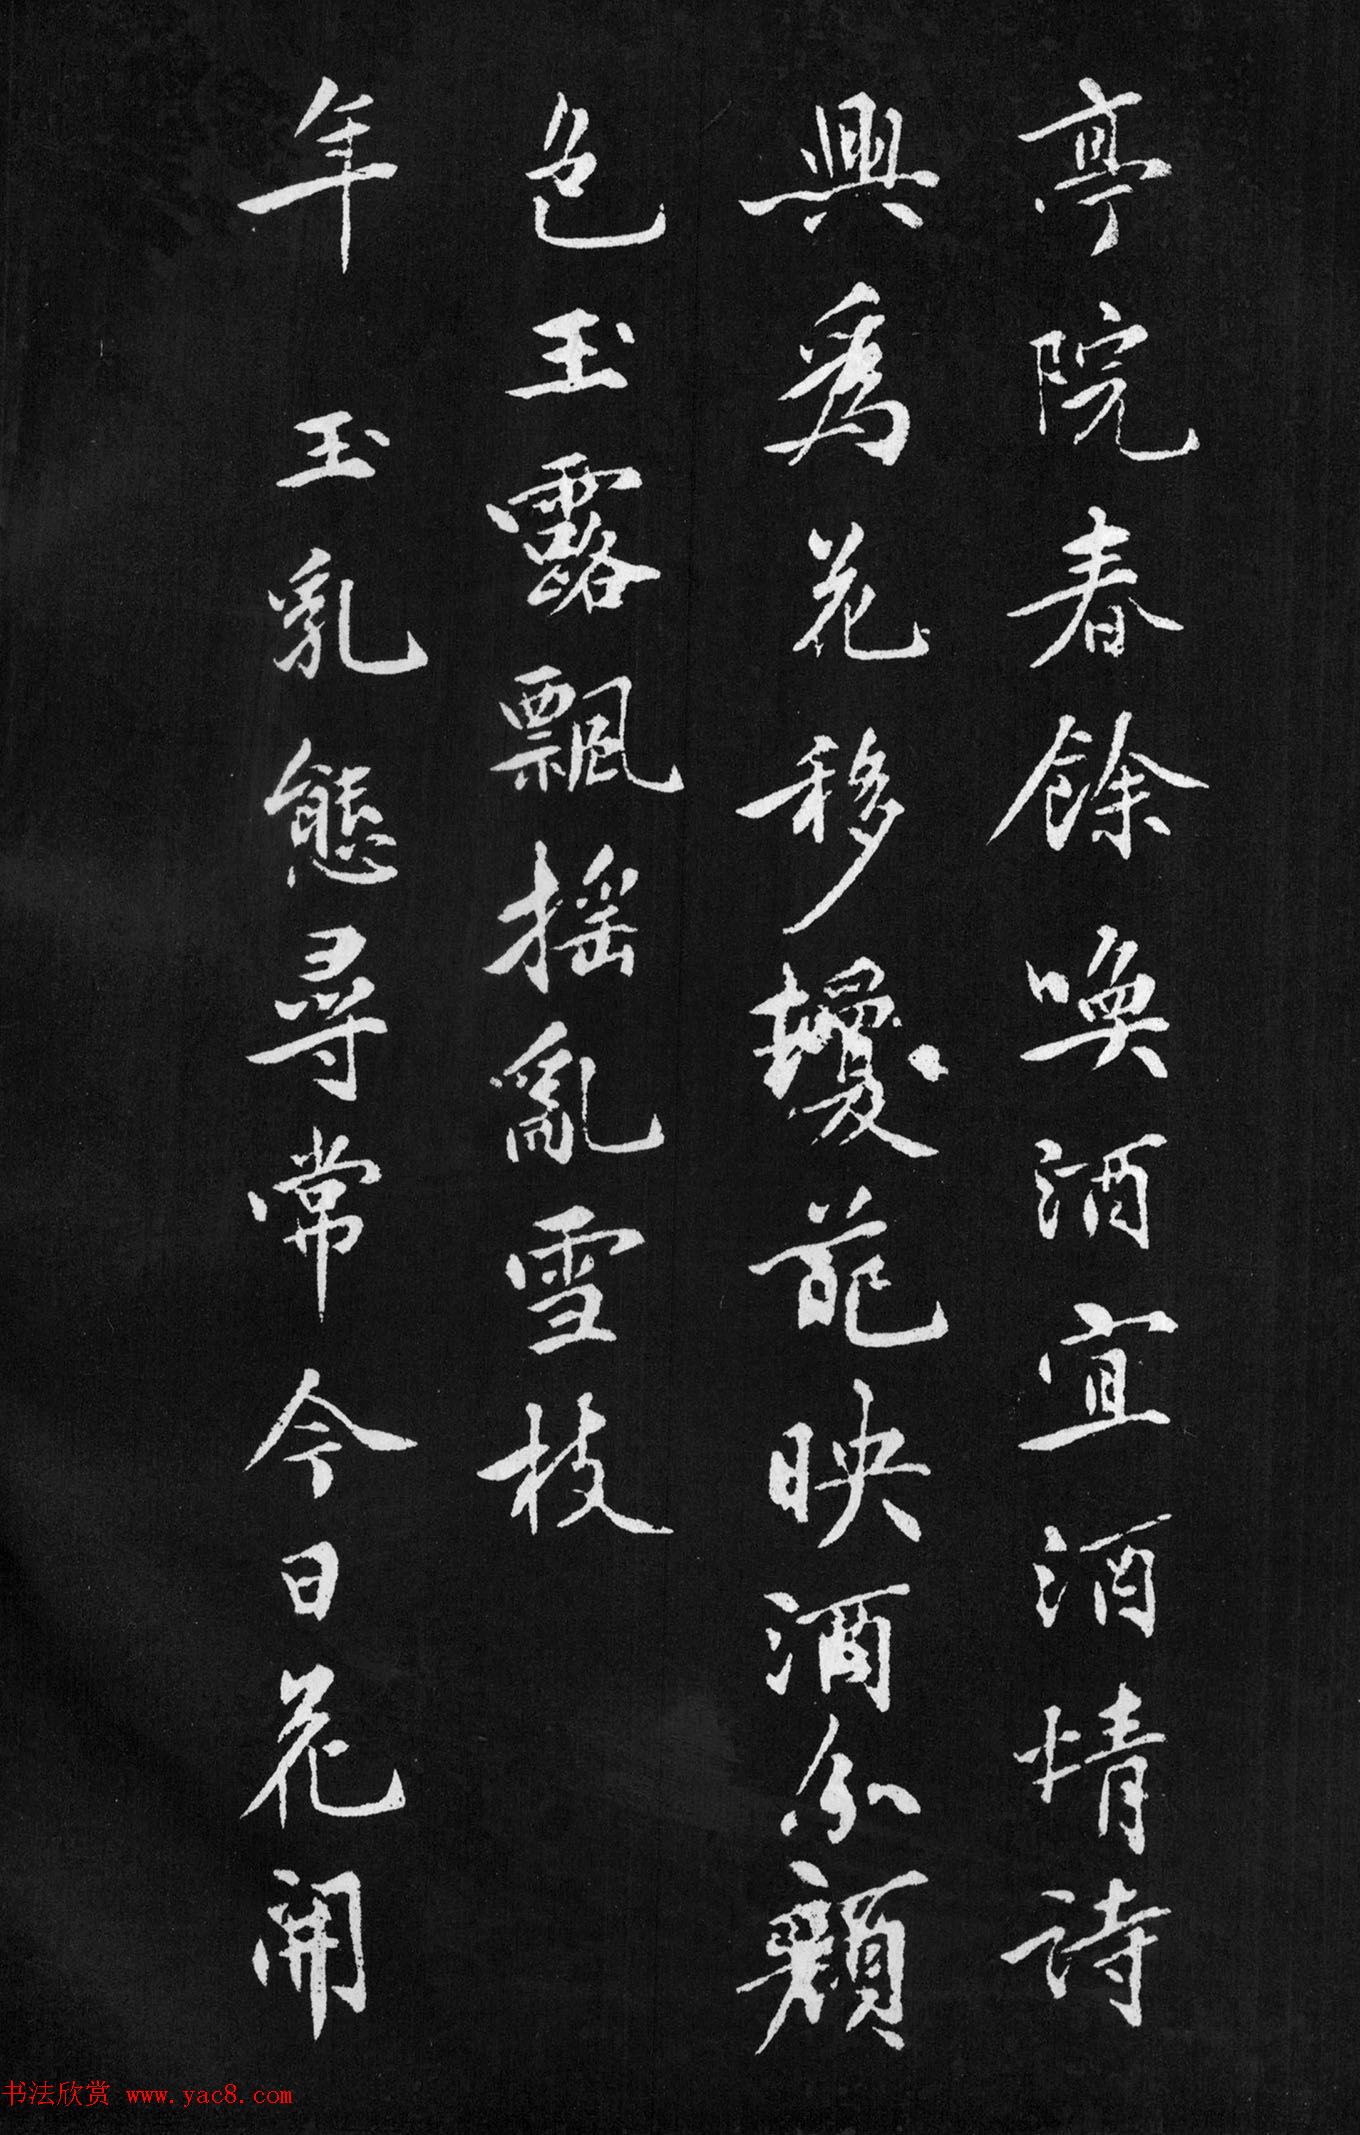 亭院春餘喚酒宜酒情詩
興為花移擾花映酒分顏
色玉露飄搖亂雪枝
年 玉乳態尋常今日花開
书法欣赏 www.yac8.com